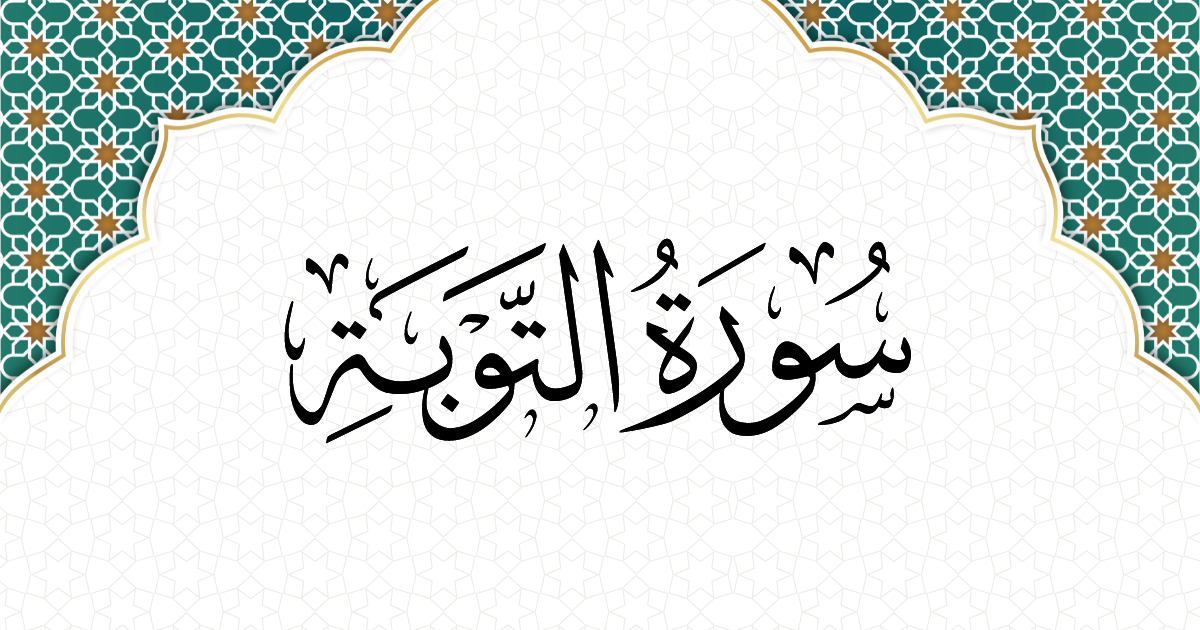 سُورَةُ التَّوْبَةِ